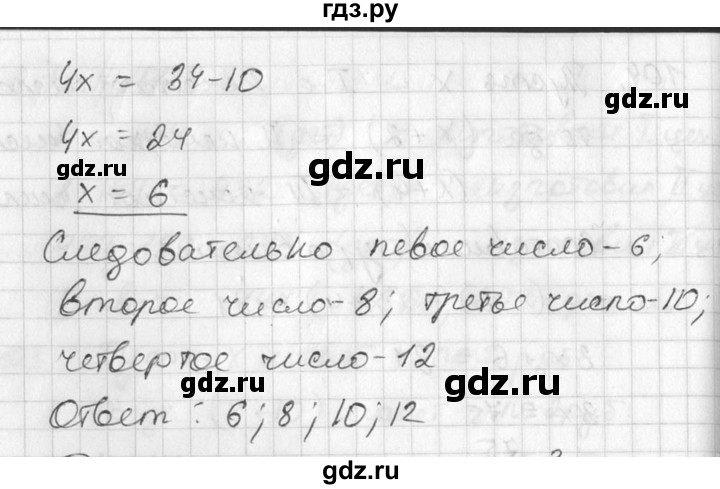 гдз.ру
4x = 34-10
4x = 24
gdz.ru
gdz.ru
gdz.ru
x = 6
Следовательно певое число - 6;
второе число - 8; третье число - 10;
четвертое число - 12
gdz.ru
gdz.ru
Ответ: 6; 8; 10; 12
gdz.ru